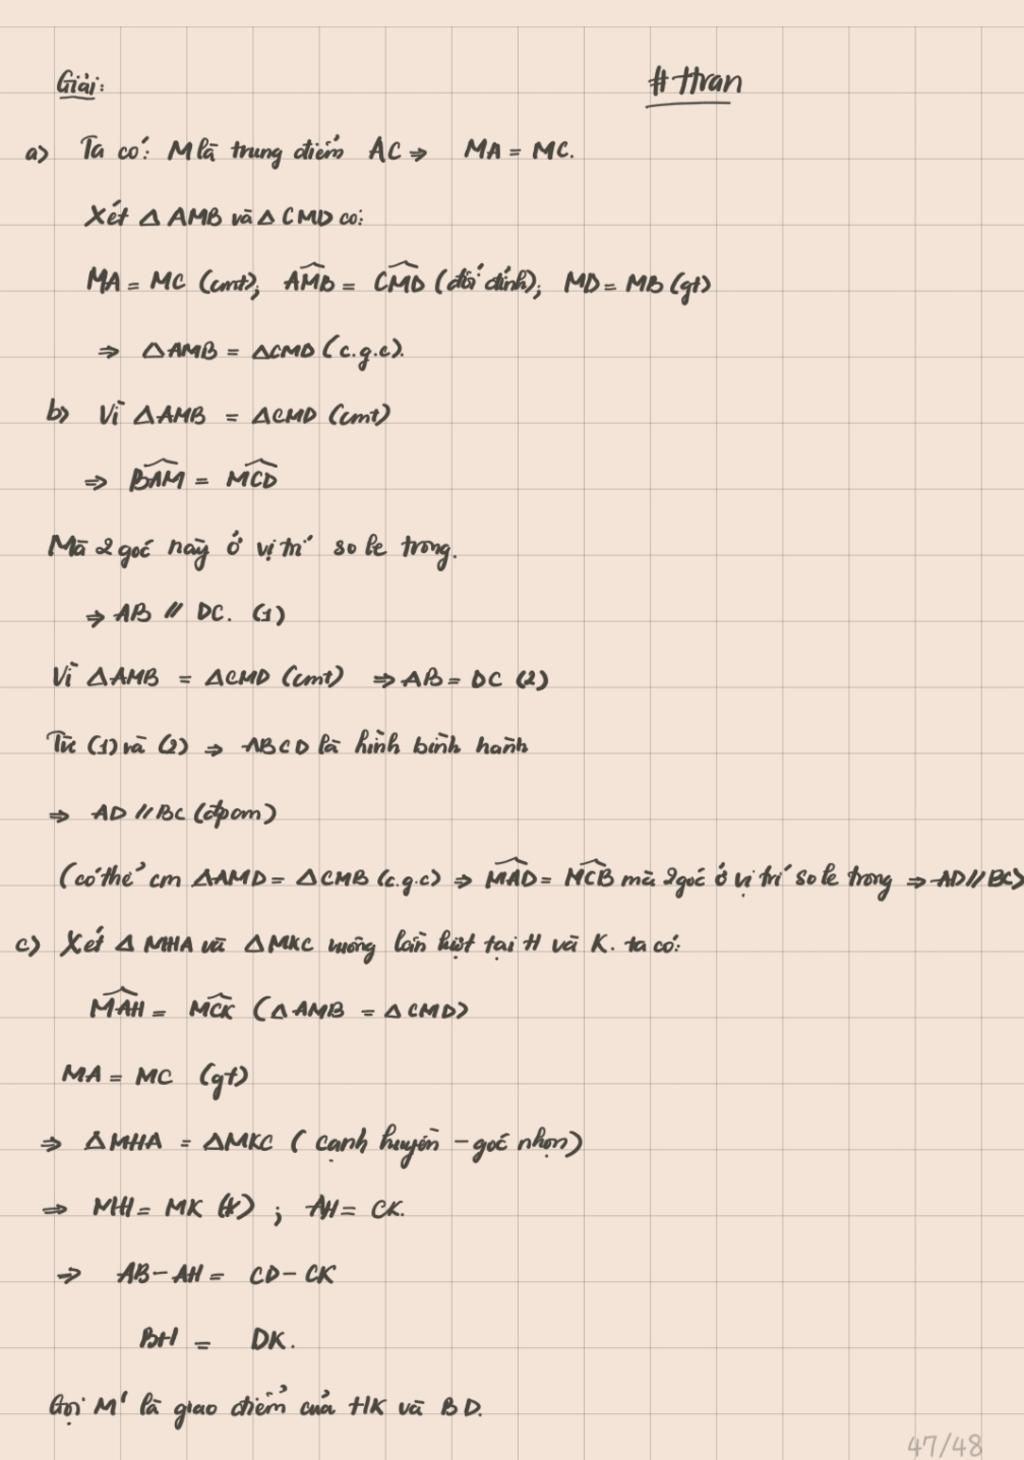 Giải:
# thran
a) Ta có: M là trung điểm AC ⇒ MA = MC.
Xét Δ AMB và Δ CMD có:
MA = MC (cmt); AMB = CMD (đối đỉnh); MD = MB (gt)
⇒ ΔAMB = ΔCMD (c.g.c).
b) Vì ΔAMB = ΔCMD (cmt)
⇒ BAM = MCD
Mà 2 góc này ở vị trí so le trong.
⇒ AB // DC. (1)
Vì ΔAMB = ΔCMD (cmt) ⇒ AB = DC (2)
Từ (1) và (2) ⇒ ABCD là hình bình hành
⇒ AD // BC (đpcm)
(có thể cm ΔAMD = ΔCMB (c.g.c) ⇒ MAD = MCB mà 2 góc ở vị trí so le trong ⇒ AD // BC)
c) Xét Δ MHA và ΔMKC vuông lần lượt tại H và K. ta có:
MAH = MCK (ΔAMB = ΔCMD)
MA = MC (gt)
⇒ ΔMHA = ΔMKC (cạnh huyền - góc nhọn)
⇒ MH = MK (*) ; AH = CK.
⇒ AB - AH = CD - CK
BH = DK.
Gọi M' là giao điểm của HK và BD.
47/48